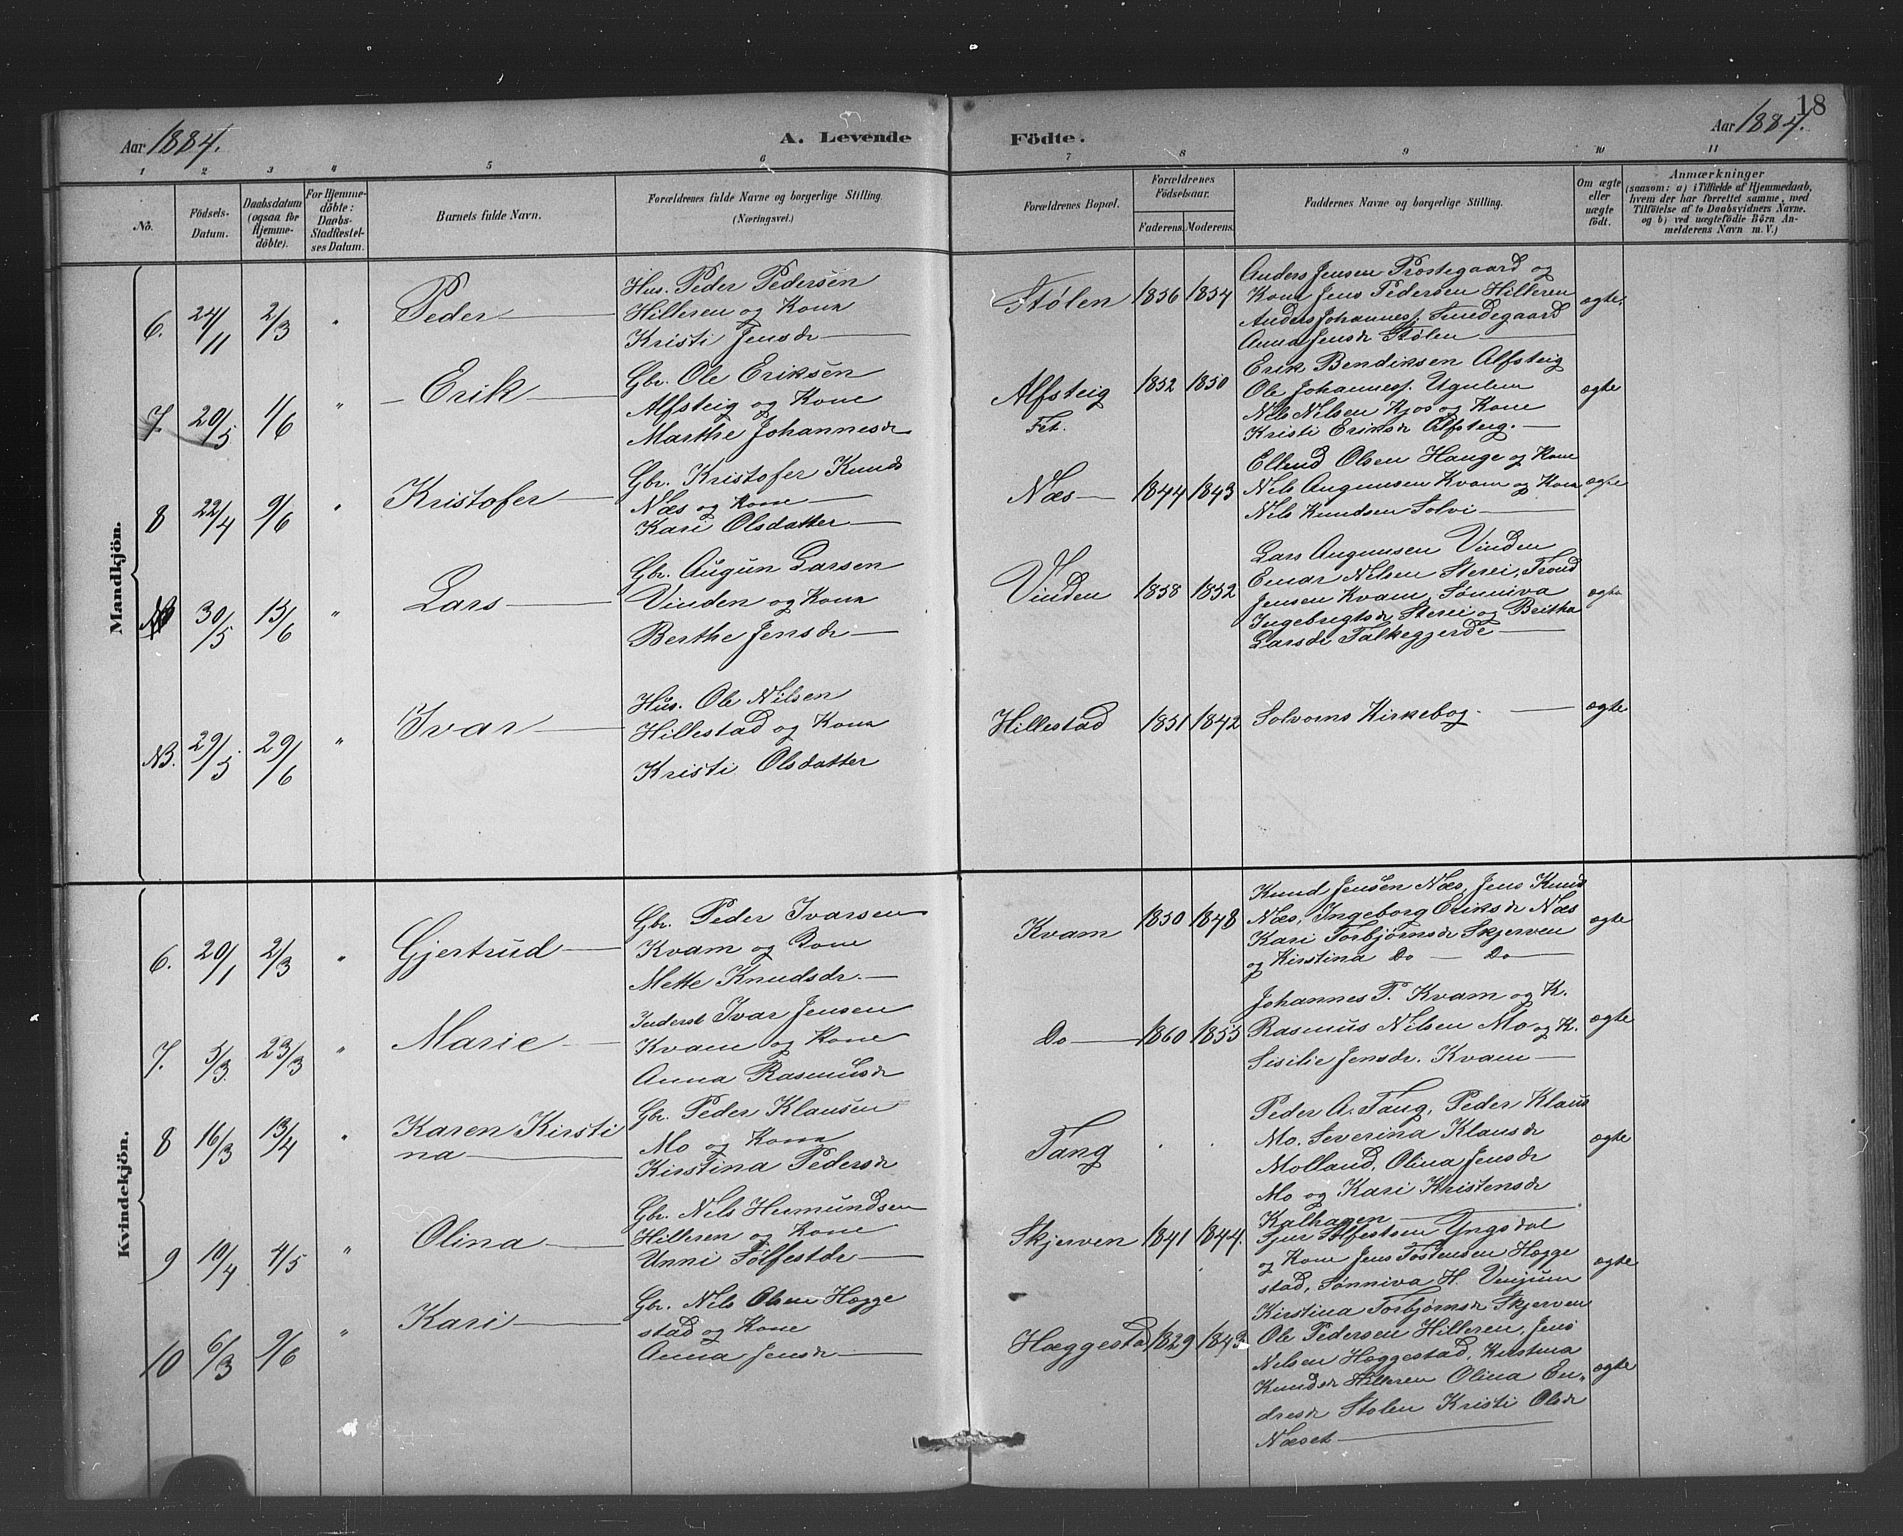 18
Aar 1884.
A. Levende Födte.
Aar 1884.
1 2 3 4 5 6 7 8 9 10 11
No.
Födsels-Datum.
Daabsdatum (ogsaa for Hjemmedöbte).
For Hjemmedöbte: Daabs-Stadfæstelses Datum.
Barnets fulde Navn.
Forældrenes fulde Navne og borgerlige Stilling.
(Næringsvei.)
Forældrenes Bopæl.
Forældrenes Födselsaar.
Faderens. Moderens.
Faddernes Navne og borgerlige Stilling.
Om ægte eller uægte födt.
Anmærkninger
(saasom: a) i Tilfælde af Hjemmedaab, hvem der har forrettet samme, med Tilföielse af to Daabsvidners Navne. og b) ved uægtefödte Börn Anmelderens Navn m. V.)
Mandkjön.
6. 24/11 2/3 " Peder
Hus. Peder Pedersen
Hilleren og Kona
Kristi Jensdr
Stølen 1856 1854
Anders Jensen Prostegaard og
Kone Jens Pedersen Hilleren
Anders Johannesf. Smedegaard
Anna Jensdr Stølen
ægte.
7. 20/5 1/6 " Erik
Gbr. Ole Eriksen
Alfsteig og Kone
Marthe Johannesdr
Alfsteig
Fet.
1852 1850
Erik Bendiksen Alfsteig
Ole Johannesf. Ygulem
Nils Nilsen Kjos og Kone
Kristi Eriksdr Alfsteig.
ægte
8 22/4 9/6 " Kristofer
Gbr. Kristofer Knuds
Næs og Kone
Kari Olsdatter
Næs 1844 1843
Ellend Olsen Hauge og Kone
Nils Augunsen Kvam og Kona
Nils Knudsen Solvi
ægte
30/5 15/6 " Lars
Gbr. Augun Larsen
Vinden og Kona
Berthe Jensdr
Vinden 1858 1852
Lars Augunsen Vinden
Einar Nilsen Sterei, Trond
Jensen Kvam, Sønniva
Ingebrigtsdr Sterei og Britha
Larsdr Falkegjerde
ægte
NB. 29/5 29/6 " Ivar
Hus. Ole Nilsen
Hillestad og Kona
Kristi Olsdatter
Hillestad 1851 1842
Solvorns Kirkebog.
ægte
Kvindekjön.
6. 20/1 2/3 " Gjertrud
Gbr. Peder Ivarsen
Kvam og Kone
Mette Knudsdr.
Kvam 1850 1848
Knud Jensen Næs, Jens Knuds
Næs, Ingeborg Eriksdr Næs
Kari Torbjørnsdr Skjerven
og Kirstina Do Do
ægte
7. 5/3 23/3 " Marie
Inderst Ivar Jensen
Kvam og Kone
Anna Rasmusdr
Do 1860 1855
Johannes P. Kvam og K.
Rasmus Nilsen Mo og K.
Sisilie Jensdr. Kvam
ægte
8 16/3 13/4 " Karen Kirsti
na
Gbr. Peder Klausen
Mo og Kona
Kirstina Pedersdr
Tang . .
Peder A. Tang, Peder Klaus
Mo. Severina Klausdr
Molland, Olina Jensdr
Mo og Kari Kristensdr
Kalhagen
ægte
9 19/4 4/5 " Olina
Gbr. Nils Hermundsen
Hilleren og Kone
Unni Sølfestdr
Skjerven 1841 1844.
Sjur Sølfestsen Yngsdal
og Kone Jens Tostensen Hægge
stad, Sønniva H. Venjum
Kirstina Torbjørnsdr Skjerven
ægte
10 6/3 9/6 " Kari
Gbr. Nils Olsen Hægge
stad og Kone
Anna Jensdr
Hæggestad 1829 1843
Ole Pedersen Hilleren, Jens
Nilsen Hæggestad, Kirstina
Knudsdr Hilleren Olina En-
dresdr Stolen Kristi Olsdr
Næset
ægte